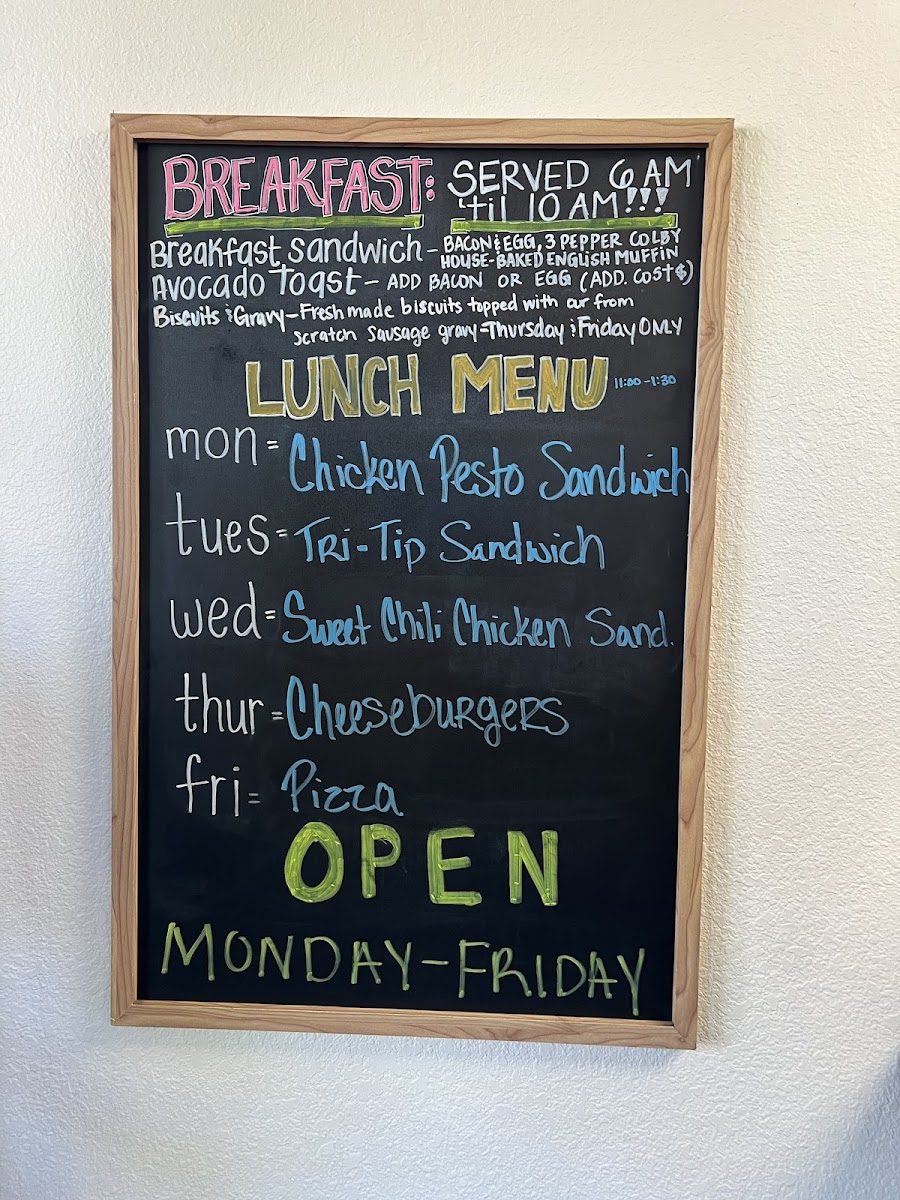 BREAKFAST: SERVED 6 AM
'til 10 AM!!!
Breakfast sandwich - BACON & EGG, 3 PEPPER COLBY
HOUSE-BAKED ENGLISH MUFFIN
Avocado Toast - ADD BACON OR EGG (ADD. COST $)
Biscuits & Gravy - Fresh made biscuits topped with our from
scratch sausage gravy - Thursday & Friday ONLY
LUNCH MENU 11:00 - 1:30
mon = Chicken Pesto Sandwich
tues = Tri-Tip Sandwich
wed = Sweet Chili Chicken Sand.
thur = Cheeseburgers
fri = Pizza
OPEN
MONDAY - FRIDAY